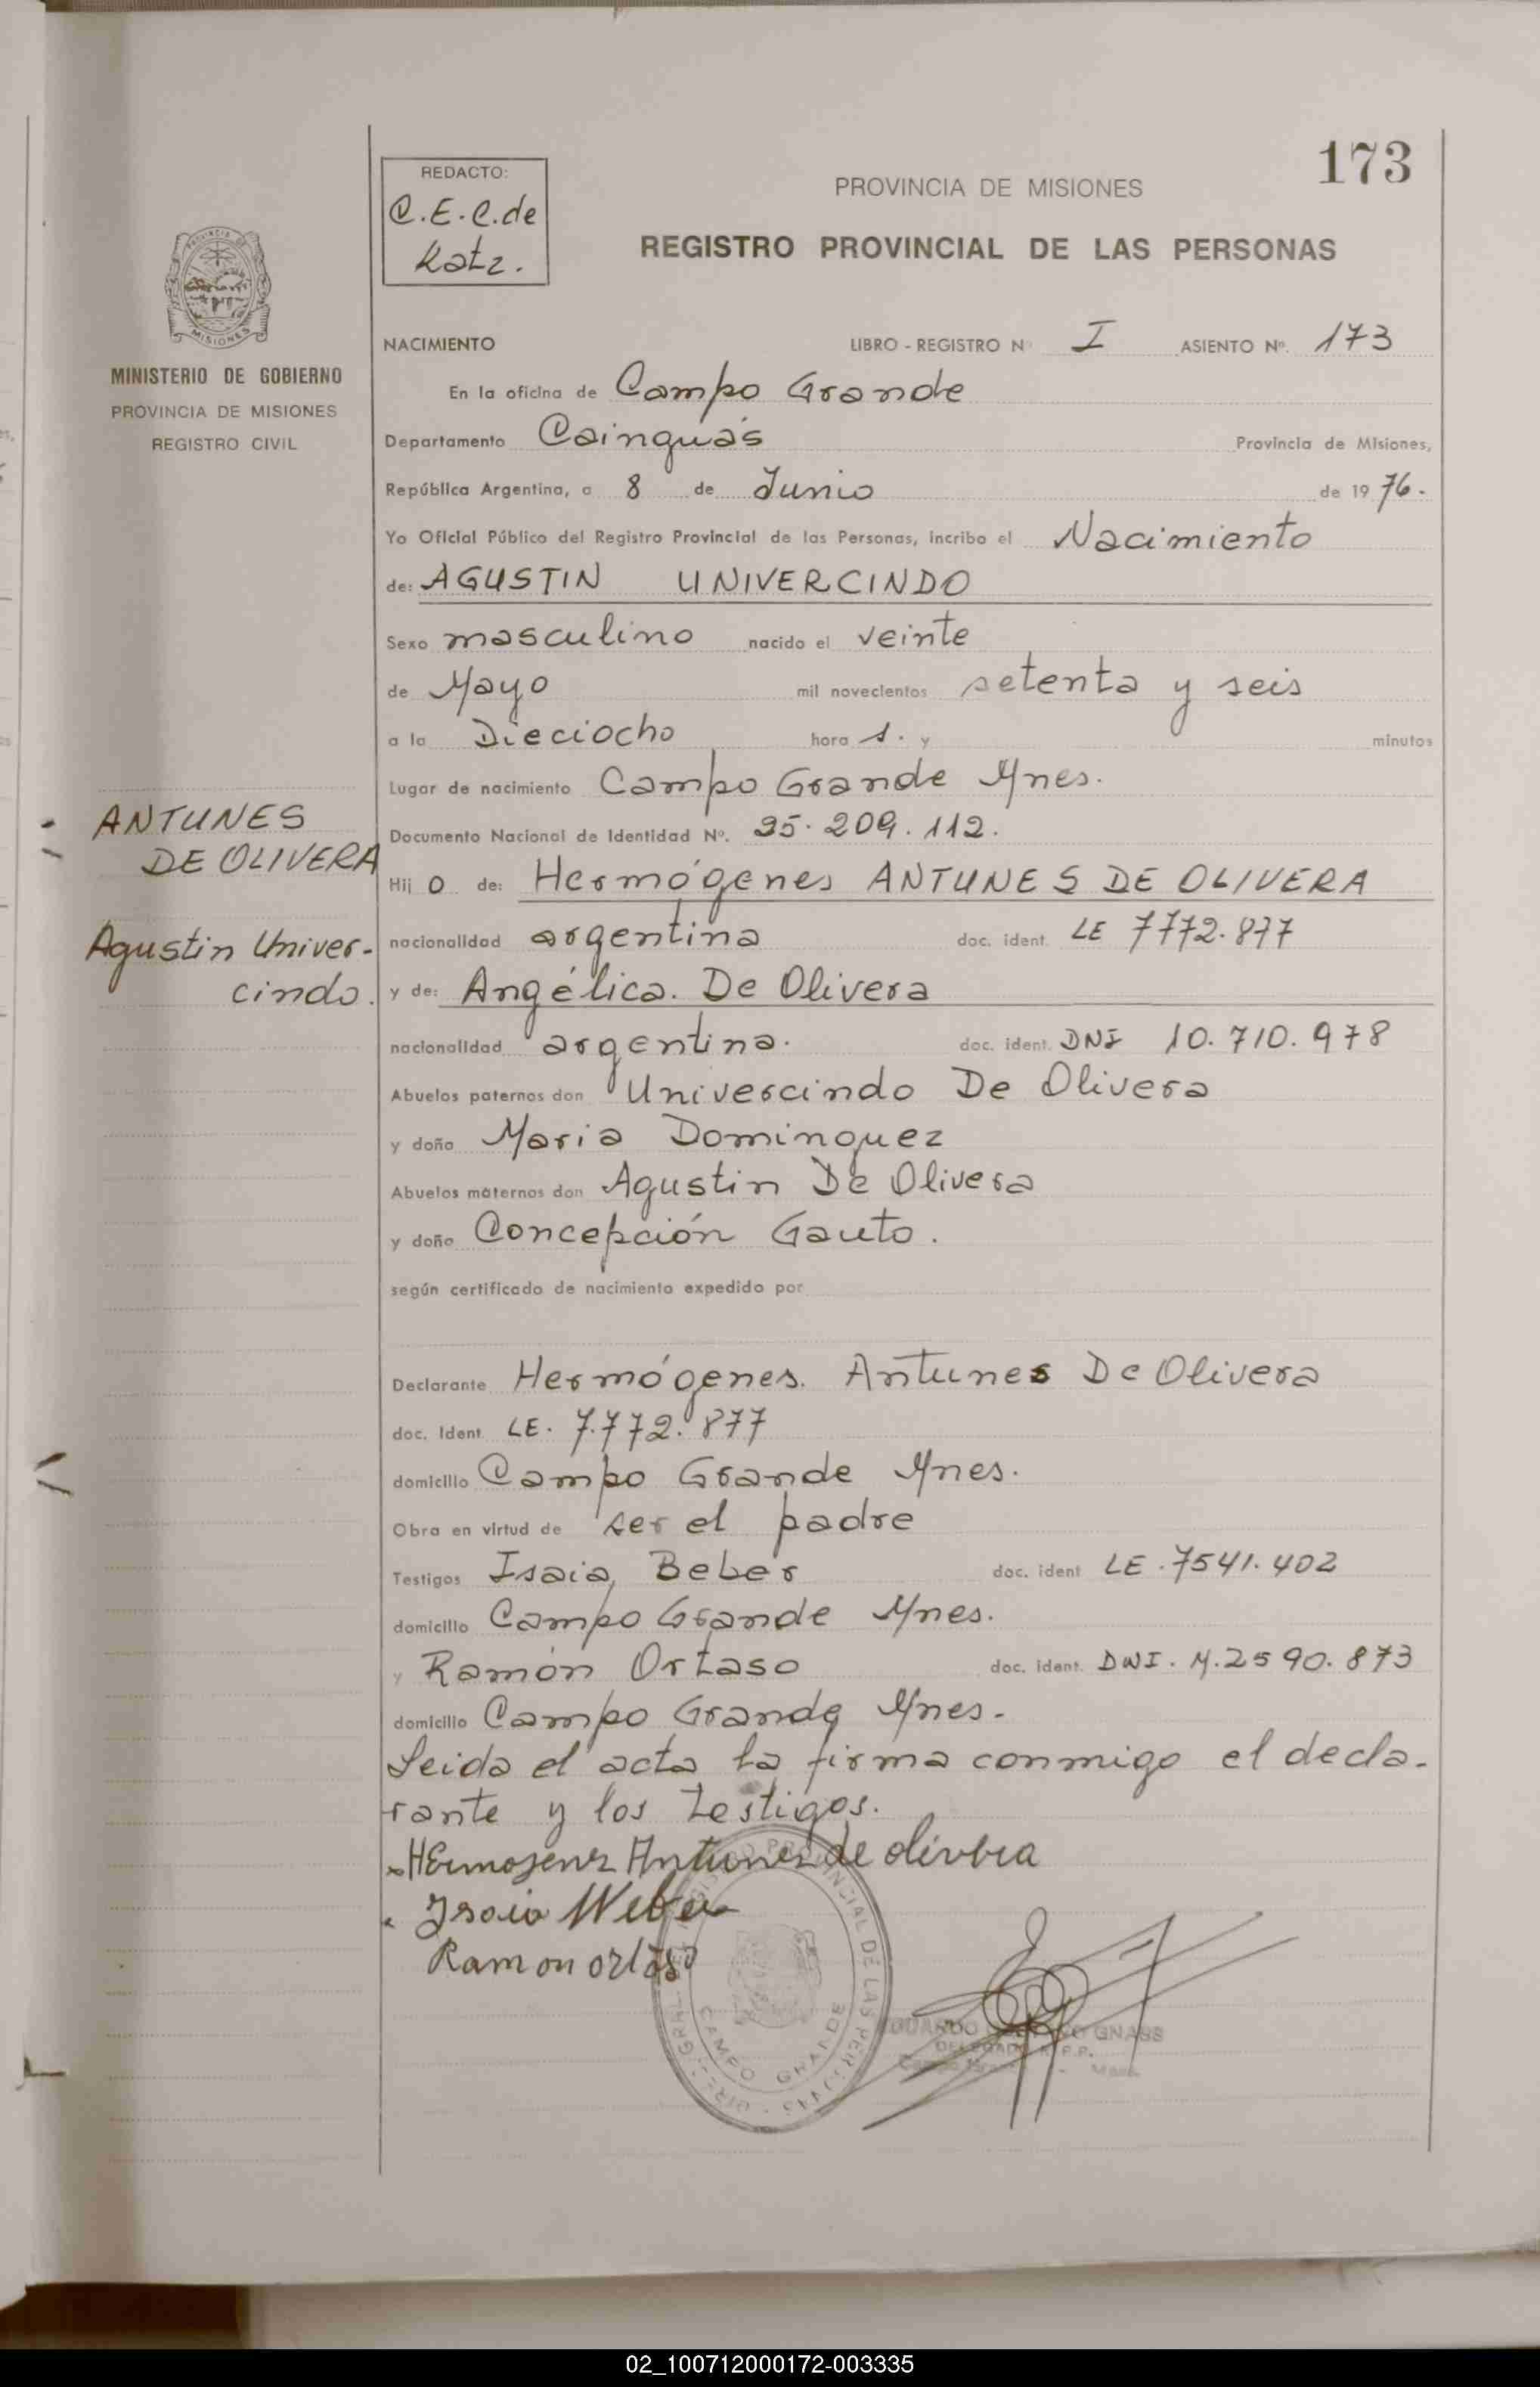 173
REDACTO:
C.E.C. de
Katz.
PROVINCIA DE MISIONES
REGISTRO PROVINCIAL DE LAS PERSONAS
PROVINCIA DE
MISIONES
MINISTERIO DE GOBIERNO
PROVINCIA DE MISIONES
REGISTRO CIVIL
NACIMIENTO LIBRO - REGISTRO N I ASIENTO Nº. 173
En la oficina de Campo Grande
Departamento Cainguás Provincia de Misiones,
República Argentina, a 8 de Junio de 19 76.
Yo Oficial Público del Registro Provincial de las Personas, incribo el Nacimiento
de: AGUSTIN UNIVERCINDO
Sexo masculino nacido el veinte
de Mayo mil novecientos setenta y seis
a la Dieciocho hora s. y minutos
Lugar de nacimiento Campo Grande Mnes.
ANTUNES
DE OLIVERA
Documento Nacional de Identidad Nº. 25.209.112.
Hij o de: Hermógenes ANTUNES DE OLIVERA
Agustin Univer-
cindo.
nacionalidad argentina doc. ident. LE 7772.877
y de: Angélica. De Olivera
nacionalidad argentina. doc. ident. DNI 10.710.978
Abuelos paternos don Univercindo De Olivera
y doña Maria Dominquez
Abuelos maternos don Agustin De Olivera
y doña Concepción Gauto.
según certificado de nacimiento expedido por
Declarante Hermógenes. Antunes De Olivera
doc. Ident. LE. 7.772.877
domicilio Campo Grande Mnes.
Obra en virtud de ser el padre
Testigos Isaia, Beber doc. ident LE.7541.402
domicilio Campo Grande Mnes.
y Ramón Ortaso doc. ident. DNI. M.2590.873
domicilio Campo Grande Mnes.
Leida el acta la firma conmigo el decla-
rante y los testigos.
Hermogenes Antunes de olivera
Isaia Weber
Ramon ortaso
REGISTRO PROVINCIAL DE LAS PERSONAS
CAMPO GRANDE
EDUARDO GNASS
DELEGADO R.P.P.
02_100712000172-003335